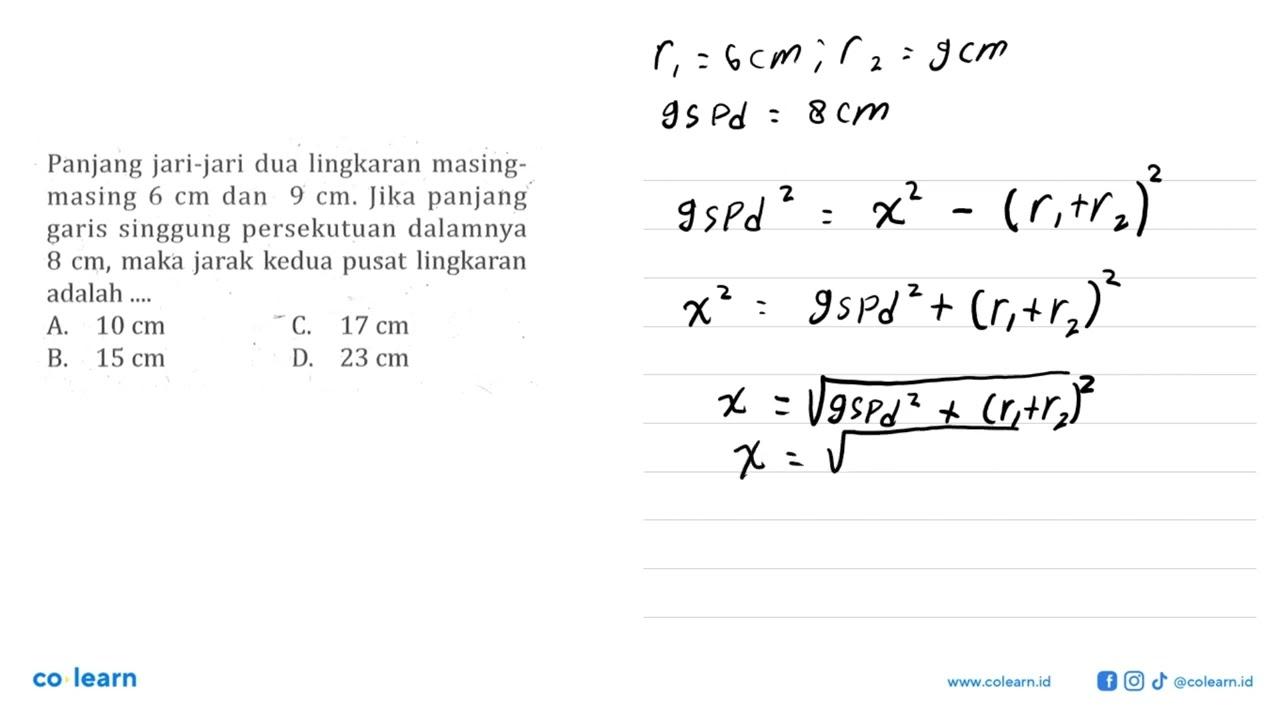 Panjang jari-jari dua lingkaran masing-
masing 6 cm dan 9 cm. Jika panjang
garis singgung persekutuan dalamnya
8 cm, maka jarak kedua pusat lingkaran
adalah ....
A. 10 cm C. 17 cm
B. 15 cm D. 23 cm
r₁ = 6 cm ; r₂ = 9 cm
gspd = 8 cm
gspd² = x² - (r₁+r₂)²
x² = gspd² + (r₁+r₂)²
x = √gspd² + (r₁+r₂)²
x = √
co learn
www.colearn.id @colearn.id